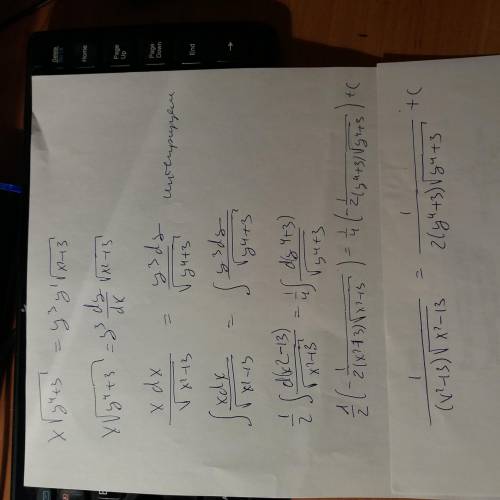 Home
Page Up
Page Down
End
→
x√(y⁴+3) = y³y'√(x²-13)
x√(y⁴+3) = y³ dy/dx √(x²-13)
x dx/√(x²-13) = y³ dy/√(y⁴+3) интегрируем
∫ x dx/√(x²-13) = ∫ y³ dy/√(y⁴+3)
1/2 ∫ d(x²-13)/√(x²-13) = 1/4 ∫ d(y⁴+3)/√(y⁴+3)
1/2 (- 1/(2(x²-13)√(x²-13))) = 1/4 (- 1/(2(y⁴+3)√(y⁴+3))) + C
1/((x²-13)√(x²-13)) = 1/(2(y⁴+3)√(y⁴+3)) + C